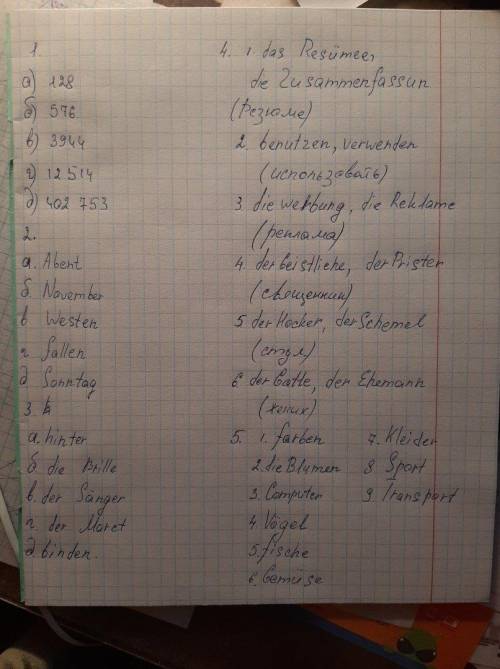 1.
а) 128
б) 576
в) 3944
г) 12 514
д) 402 753
2.
а. Abent
б. November
в Westen
г fallen
д Sonntag
3
а. hinter
б die Brille
в. der Sänger
г. der Maret
д. binden.
4. 1. das Resümeer
die Zusammenfassun
(резюме)
2. benutzen, verwenden
(использовать)
3. die Werbung, die Reklame
(реклама)
4. der Geistliche, der Prister
(священник)
5 der Hocker, der Schemel
(стул)
6. der Gatte, der Ehemann
(жених)
5. 1. farben
2. die Blumen
3. Computer
4. Vögel
5. fische
6. Gemüse
7. Kleider
8 Sport
9. Transport